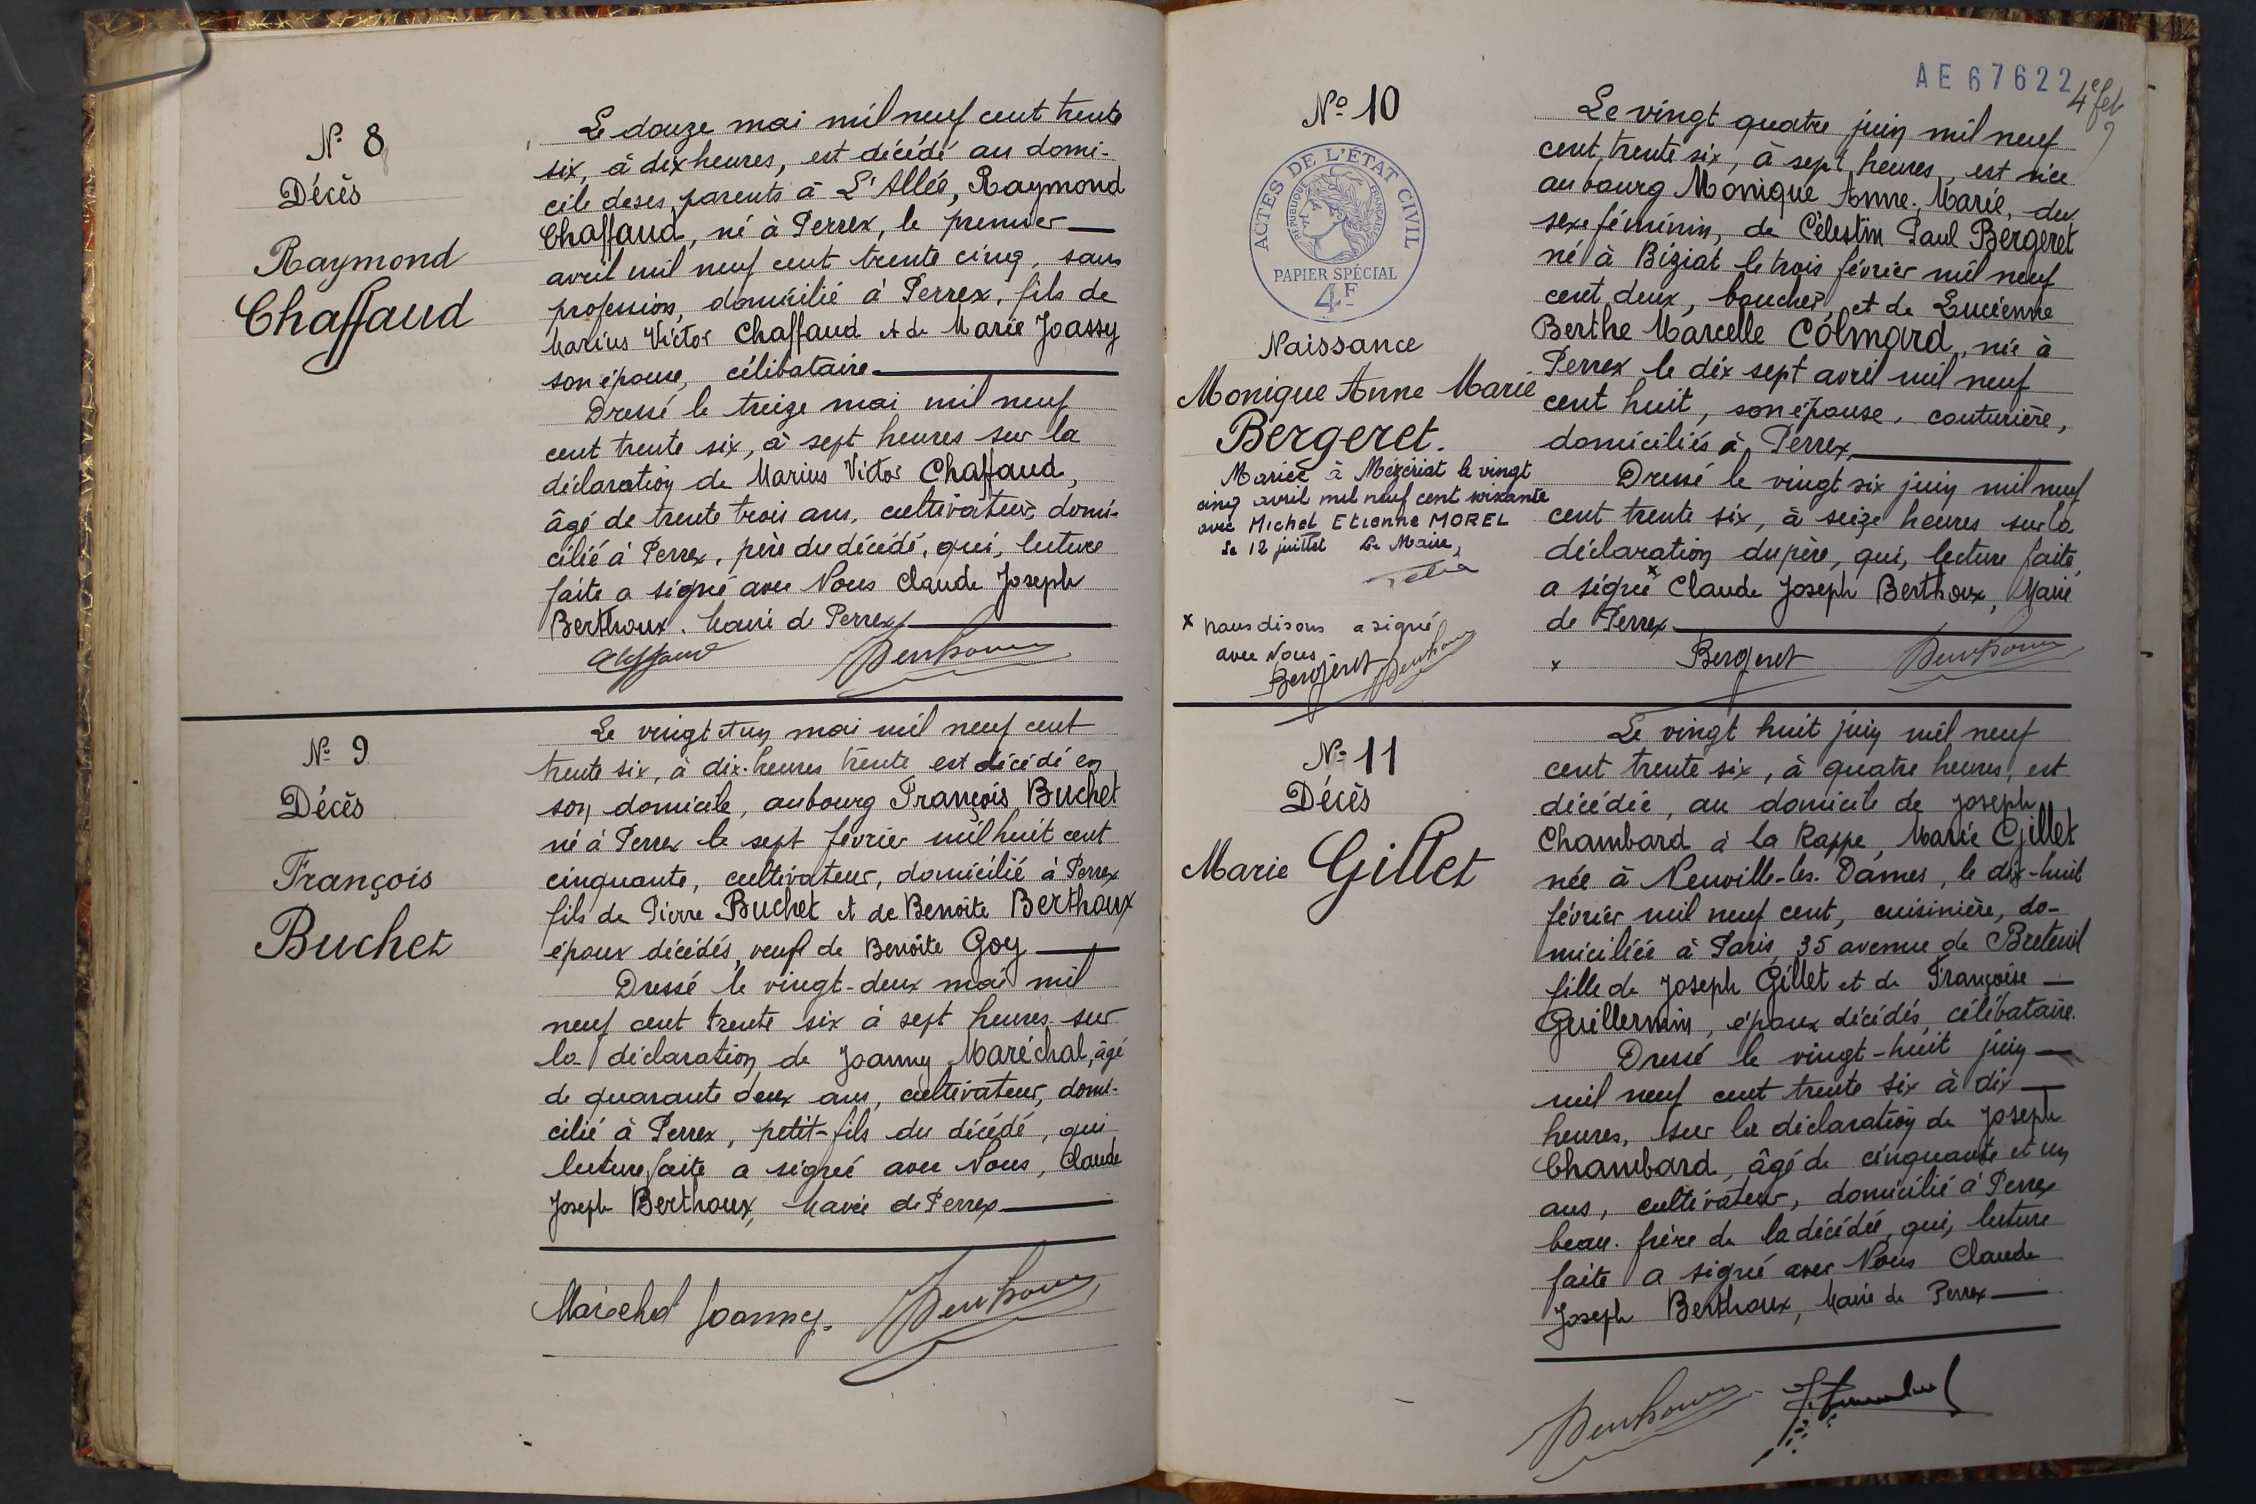 N° 8
Décès
Raymond
Chaffaud
Le douze mai mil neuf cent trente
six, à dix heures, est décédé au domi-
cile de ses parents à L'Allée, Raymond
Chaffaud, né à Perrex, le premier
avril mil neuf cent trente cinq, sans
profession, domicilié à Perrex, fils de
Marius Victor Chaffaud et de Marie Joassy
son épouse, célibataire
Dressé le treize mai mil neuf
cent trente six, à sept heures sur la
déclaration de Marius Victor Chaffaud,
âgé de trente trois ans, cultivateur, domi-
cilié à Perrex, père du décédé, qui, lecture
faite a signé avec Nous Claude Joseph
Berthoux, Maire de Perrex
Chaffaud Berthoux
N° 9
Décès
François
Buchet
Le vingt et un mai mil neuf cent
trente six, à dix heures trente est décédé en
son domicile, au bourg François Buchet
né à Perrex le sept février mil huit cent
cinquante, cultivateur, domicilié à Perrex
fils de Pierre Buchet et de Benoîte Berthoux
époux décédés, veuf de Benoîte Goy
Dressé le vingt-deux mai mil
neuf cent trente six à sept heures sur
la déclaration de Joanny Maréchal, âgé
de quarante deux ans, cultivateur, domi-
cilié à Perrex, petit-fils du décédé, qui
lecture faite a signé avec Nous, Claude
Joseph Berthoux, Maire de Perrex
Maréchal Joanny. Berthoux
AE 67622
N° 10
ACTES DE L'ÉTAT CIVIL
RÉPUBLIQUE FRANÇAISE
PAPIER SPÉCIAL
4F
Naissance
Monique Anne Marie
Bergeret.
Mariée à Mézériat le vingt
cinq avril mil neuf cent soixante
avec Michel Etienne MOREL
Le 12 juillet Le Maire,
x nous disons a signé
avec Nous.
Bergeret Berthoux
Le vingt quatre juin mil neuf
cent trente six, à sept heures, est née
au bourg Monique Anne. Marie, du
sexe féminin, de Célestin Paul Bergeret
né à Biziat le trois février mil neuf
cent deux, boucher, et de Lucienne
Berthe Marcelle Colmard, née à
Perrex le dix sept avril mil neuf
cent huit, son épouse, couturière,
domiciliés à Perrex
Dressé le vingt six juin mil neuf
cent trente six, à seize heures sur la
déclaration du père, qui, lecture faite,
a signé x Claude Joseph Berthoux, Maire
de Perrex
x Bergeret Berthoux
N° 11
Décès
Marie Gillet
Le vingt huit juin mil neuf
cent trente six, à quatre heures, est
décédée, au domicile de Joseph
Chambard à la Rappe, Marie Gillet
née à Neuville-les-Dames, le dix-huit
février mil neuf cent, cuisinière, do-
miciliée à Paris, 35 avenue de Breteuil
fille de Joseph Gillet et de Françoise
Guillermin, époux décédés, célibataire.
Dressé le vingt-huit juin
mil neuf cent trente six à dix
heures, sur la déclaration de Joseph
Chambard, âgé de cinquante et un
ans, cultivateur, domicilié à Perrex
beau-frère de la décédée, qui, lecture
faite a signé avec Nous Claude
Joseph Berthoux, Maire de Perrex
Berthoux